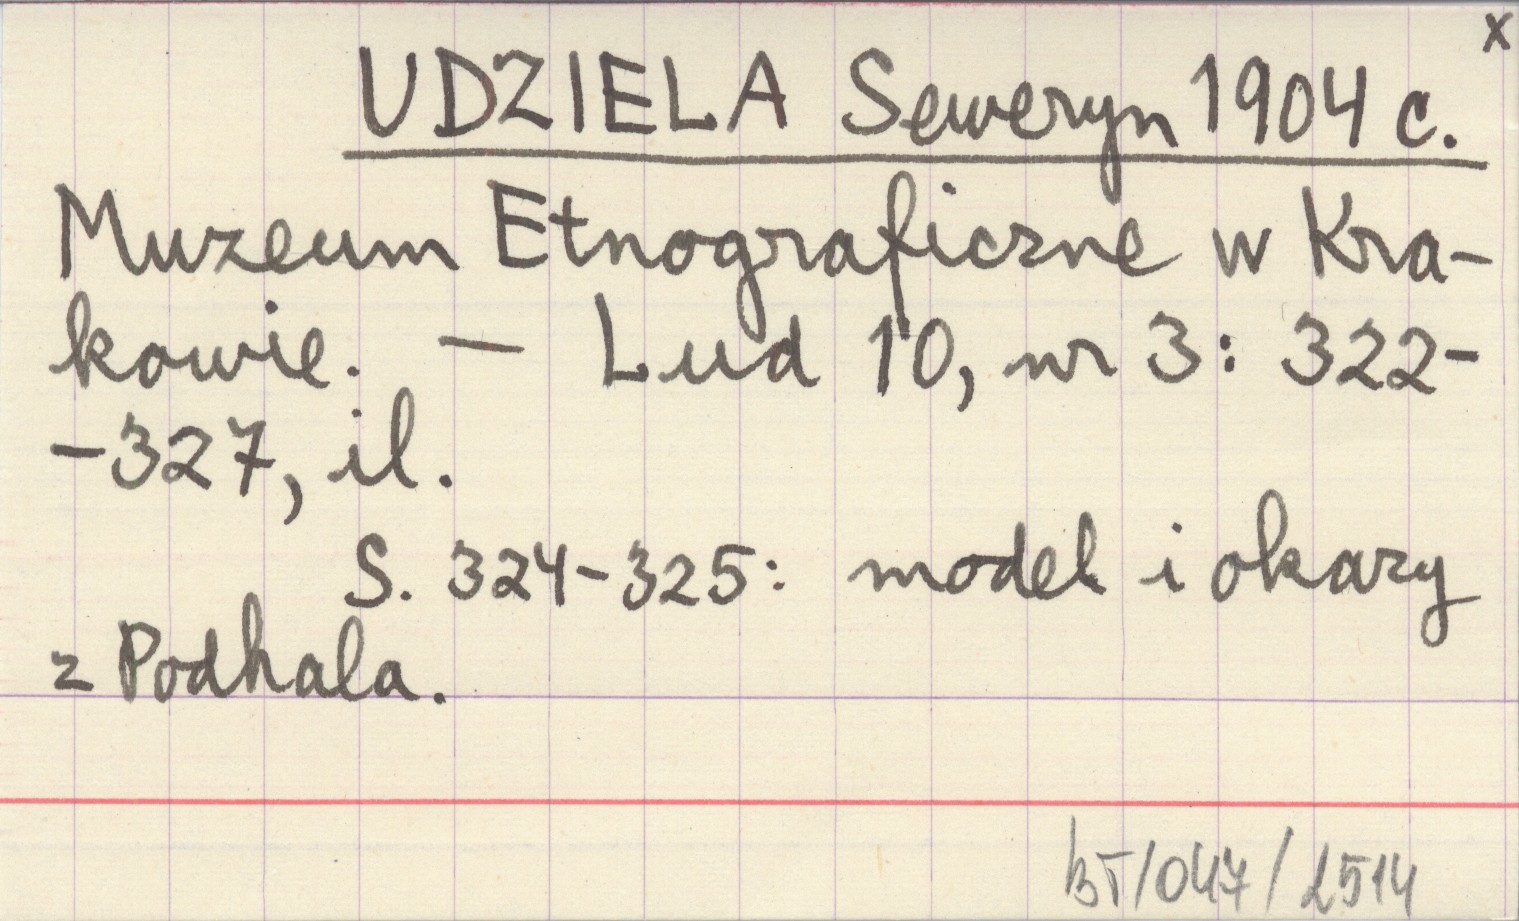 x
UDZIELA Seweryn 1904 c.
Muzeum Etnograficzne w Kra-
kowie. — Lud 10, nr 3: 322-
-327, il.
S. 324-325: model i okazy
z Podhala.
BT/047/2514